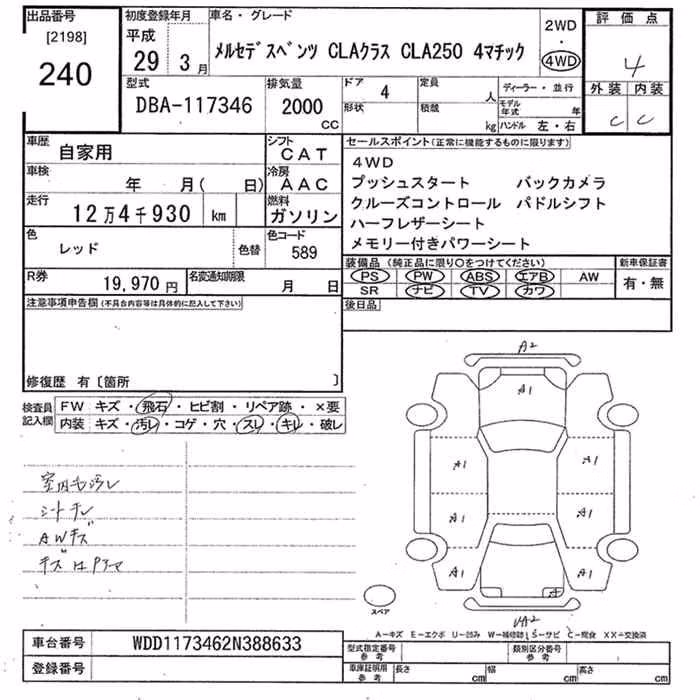 出品番号
[2198]
240
初度登録年月
平成
29 3 月
車名・グレード
メルセデスベンツ CLAクラス CLA250 4マチック
2WD
・
4WD
評価点
4
外装 内装
C C
型式
DBA-117346
排気量
2000
CC
ドア 4
形状
定員 人
積載 kg
ディーラー・並行
モデル年式 年
ハンドル 左・右
車歴
自家用
シフト
CAT
車検
年 月( 日)
冷房
AAC
走行
12万4千930 km
燃料
ガソリン
色
レッド
色替
色コード
589
R券
19,970 円
名変通知期限
月 日
セールスポイント(正常に機能するものに限ります)
4WD
プッシュスタート バックカメラ
クルーズコントロール パドルシフト
ハーフレザーシート
メモリー付きパワーシート
装備品(純正品に限り〇をつけてください)
PS PW ABS エアB AW
SR ナビ TV カワ
新車保証書
有・無
後日品
注意事項申告欄(不具合内容等は具体的に記入して下さい)
修復歴 有〔箇所 〕
検査員
記入欄
FW キズ・飛石・ヒビ割・リペア跡・×要
内装 キズ・汚レ・コゲ・穴・スレ・キレ・破レ
室内毛汚レ
シートキレ
AWキズ
A2
A1
A1 A1
A1 A1
A1 A1
A
A2
スペア
A-キズ E-エクボ U-凹み W-補修跡 S-サビ C-腐食 XX-交換済
車台番号
WDD1173462N388633
登録番号
型式指定番号
参考
類別区分番号
参考
車庫証明用
参考
長さ cm
幅 cm
高さ cm